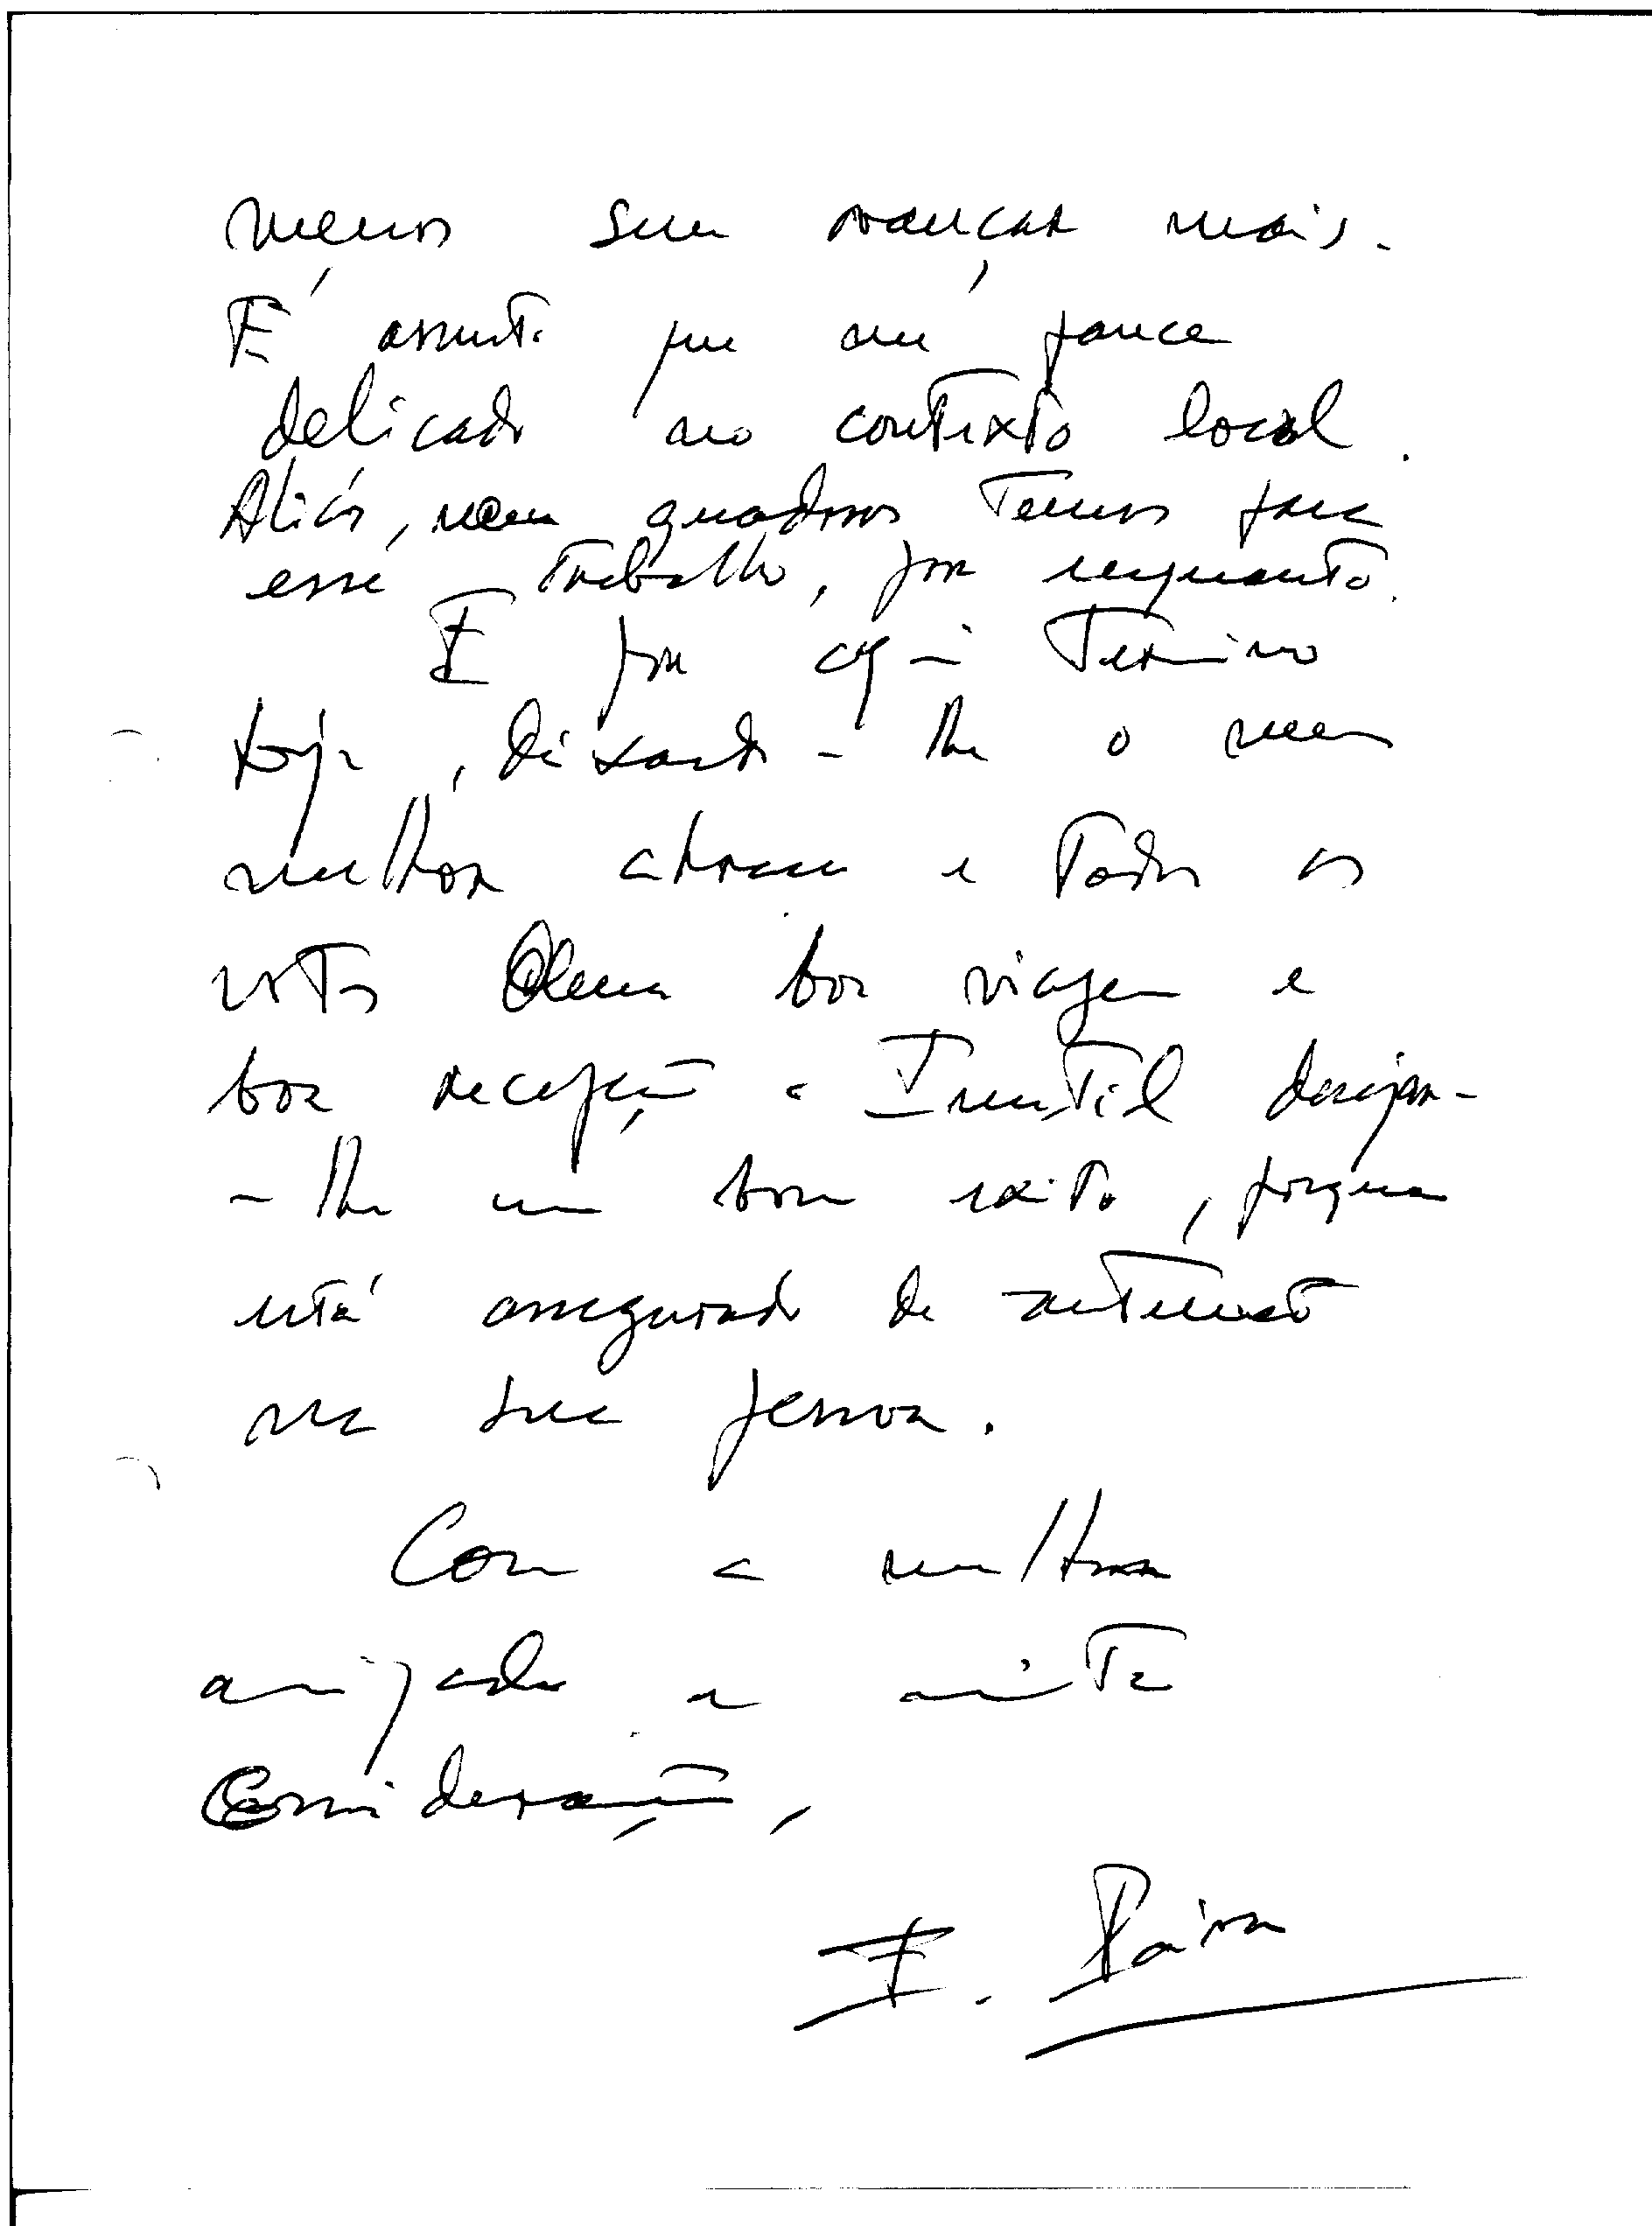 menos sem avançar mais.
É assunto que me parece
delicado no contexto local.
Aliás, nem quadros temos para
esse trabalho, por enquanto.
E por aqui termino
hoje, deixando-lhe o meu
melhor abraço e todos os
votos de uma boa viagem e
boa recepção. Inútil desejar-
-lhe um bom exito, porque
está assegurado de antemão
na sua pessoa.
Com a melhor
amizade e muita
Consideração,
E. Paiva